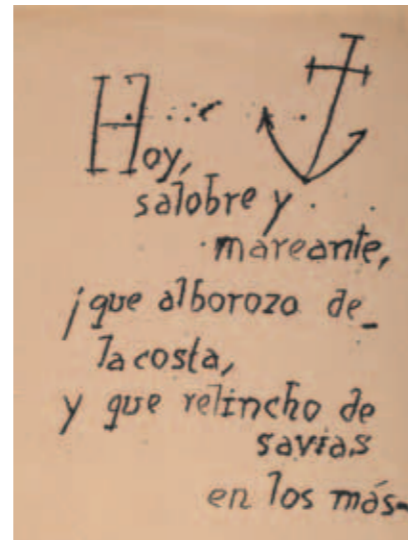 Hoy,
salobre y
mareante,
¡que alborozo de_
la costa,
y que relincho de
savias
en los más-